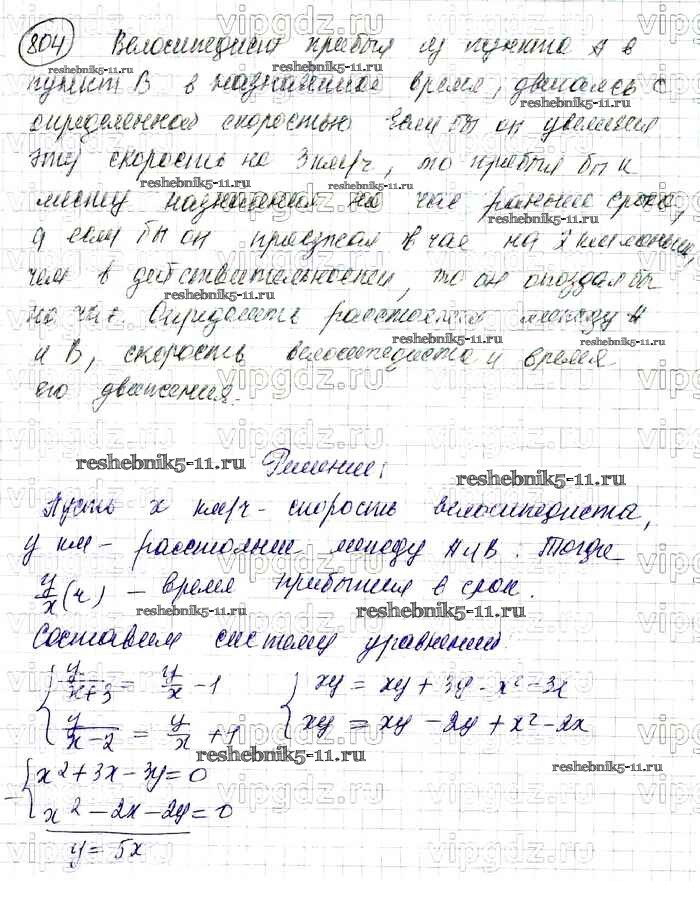 804 Велосипедист прибыл из пункта A в
пункт B в назначенное время, двигаясь с
определенной скоростью. Если бы он увеличил
эту скорость на 3 км/ч, то прибыл бы к
месту назначения на час раньше срока,
а если бы он проезжал в час на 2 км меньше,
чем в действительности, то он опоздал бы
на час. Определите расстояние между A
и B, скорость велосипедиста и время
его движения.
Решение:
Пусть x км/ч - скорость велосипедиста,
y км - расстояние между A и B. Тогда
y/x (ч) - время прибытия в срок.
Составим систему уравнений.
{ y/(x+3) = y/x - 1 { xy = xy + 3y - x² - 3x
{ y/(x-2) = y/x + 1 { xy = xy - 2y + x² - 2x
{ x² + 3x - 3y = 0
- { x² - 2x - 2y = 0
y = 5x
vipgdz.ru
resheba
reshebnik5-11.ru